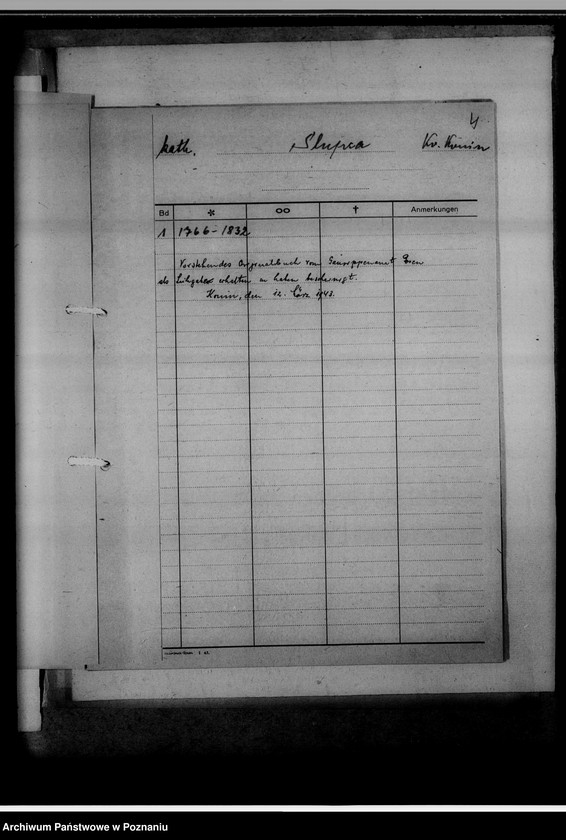 4
kath. Slupca Kr. Konin
Bd * ∞ † Anmerkungen
1 1766-1832
Vorstehendes Originalbuch vom Gausippenamt Posen
als Leihgabe erhalten zu haben bescheinigt.
Konin, den 12. März 1943.
Archiwum Państwowe w Poznaniu